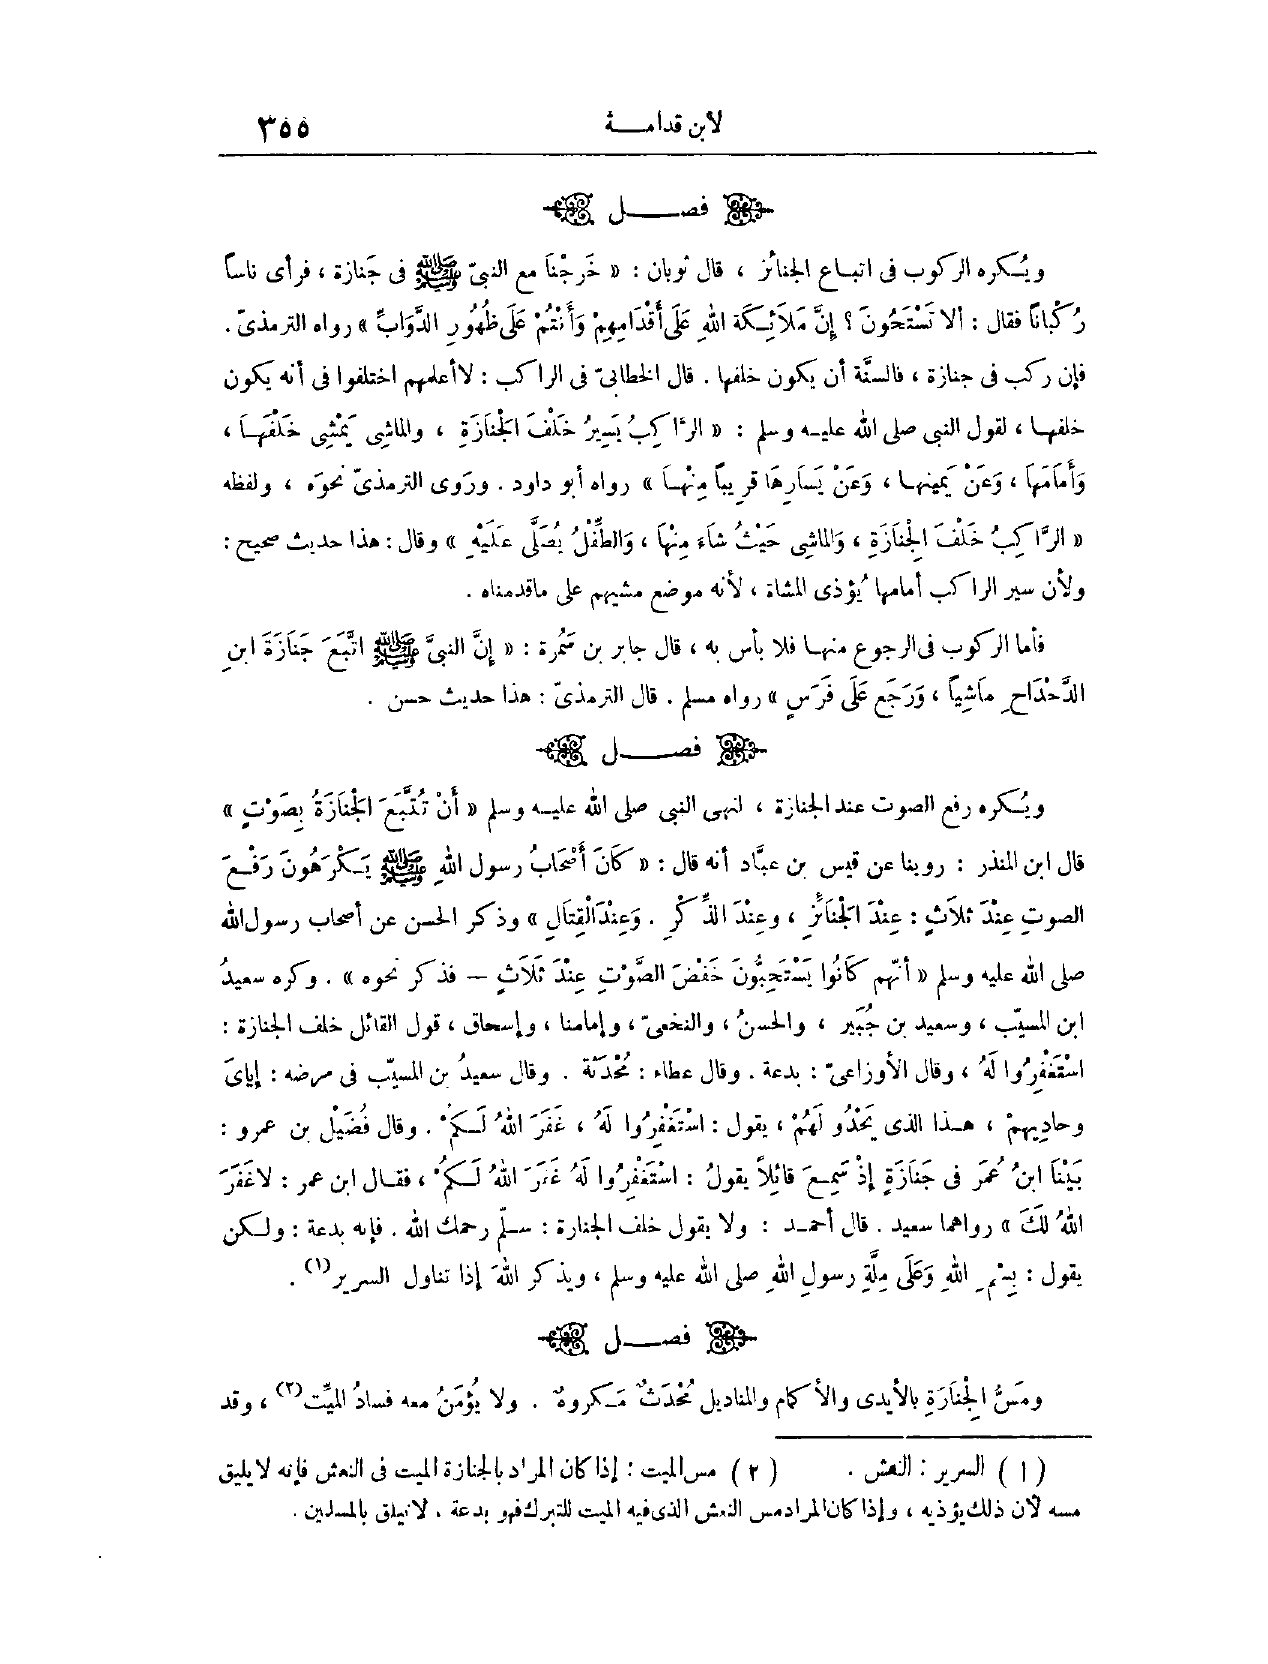 لابن قدامــة ٣٥٥
فصــل
ويُكره الركوب فى اتبـاع الجنائز ، قال ثوبان : « خَرجْنَا مع النبىّ ﷺ فى جَنازة ، فرأى ناساً
رُكْبانًا فقال : ألا تَسْتَحُونَ ؟ إنَّ مَلاَئِكَة اللهِ عَلَى أقْدَامِهِمْ وَأَنْتُمْ عَلَى ظُهُورِ الدَّوَابِّ » رواه الترمذىّ .
فإن ركب فى جنازة ، فالسنَّة أن يكون خلفها . قال الخطابىّ فى الراكب : لا أعلمهم اختلفوا فى أنه يكون
خلفهـا ، لقول النبى صلى الله عليـه وسلم : « الرَّاكِبُ يَسِيرُ خَلْفَ الجَنَازَةِ ، والماشِى يَمْشِى خَلْفَهـَا ،
وَأَمَامَهَا ، وَعَنْ يَمِينهـا ، وَعَنْ يَسَارِهَا قرِيباً مِنْهـَا » رواه أبو داود . ورَوى الترمذىّ نحوَه ، ولفظه
« الرَّاكِبُ خَلْفَ الجِنَازَةِ ، وَالماشِى حَيْثُ شاءَ مِنْهَا ، وَالطِّفْلُ يُصَلَّى عَلَيْهِ » وقال : هذا حديث صحيح :
ولأن سير الراكب أمامها يُؤذى المشاة ، لأنه موضع مشيهم على ماقدمناه .
فأما الركوب فى الرجوع منهـا فلا بأس به ، قال جابر بن سَمُرة : « إنَّ النبىَّ ﷺ اتَّبَعَ جَنَازَةَ ابنِ
الدَّحْدَاحِ مَاشِياً ، وَرَجَع عَلَى فَرَسٍ » رواه مسلم . قال الترمذىّ : هذا حديث حسن .
فصــل
ويُكره رفع الصوت عند الجنازة ، لنهى النبى صلى الله عليـه وسلم « أَنْ تُتَّبَعَ الجَنَازَةُ بِصَوْتٍ »
قال ابن المنذر : روينا عن قيس بن عبَّاد أنه قال : « كَانَ أَصْحَابُ رسول اللهِ ﷺ يَكْرَهُونَ رَفْعَ
الصوتِ عِنْدَ ثلاَثٍ : عِنْدَ الجَنَائِزِ ، وعِنْدَ الذِّكْرِ . وَعِنْدَ القِتَالِ » وذكر الحسن عن أصحاب رسول الله
صلى الله عليه وسلم « أنّهم كَانُوا يَسْتَحِبُّونَ خَفْضَ الصَّوْتِ عِنْدَ ثَلَاثٍ — فذكر نحوه » . وكره سعيدُ
ابن المسيّب ، وسعيد بن جُبَير ، والحسنُ ، والنخعىّ ، وإمامنا ، وإسحاق ، قول القائل خلف الجنازة :
اسْتَغْفِرُوا لَهُ ، وقال الأوزاعىّ : بدعة . وقال عطاء : مُحْدَثَة . وقال سعيدُ بن المسيّب فى مرضه : إياىَ
وحادِيهمْ ، هـذا الذى يَحْدُو لَهُمْ ، يقول : اسْتَغْفِرُوا لَهُ ، غَفَرَ اللهُ لَـكمْ . وقال فُضَيْل بن عمرو :
بَيْنَا ابنُ عُمَر فى جَنَازَةٍ إذْ سَمِعَ قائِلاً يقولُ : اسْتَغْفِرُوا لَهُ غَفَرَ اللهُ لَـكُمْ ، فقـال ابن عمر : لاغَفَرَ
اللهُ لَكَ » رواهما سعيد . قال أحمـد : ولا يقول خلف الجنازة : سـلّم رحمك الله . فإنه بدعة : ولـكن
يقول : بِسْمِ اللهِ وَعَلَى مِلَّةِ رسولِ اللهِ صلى الله عليه وسلم ، ويذكر اللهَ إذا تناول السرير(١) .
فصــل
ومَسُّ الجِنَازَةِ بالأيدى والأكمام والمناديل مُحْدَثٌ مَـكروهٌ . ولا يُؤمَنُ معه فسادُ الميِّت(٢) ، وقد
(١) السرير : النعش . (٢) مس الميت : إذا كان المراد بالجنازة الميت فى النعش فإنه لا يليق
مسه لأن ذلك يؤذيه ، وإذا كان المراد مس النعش الذى فيه الميت للتبرك فهو بدعة . لا تليق بالمسلمين .